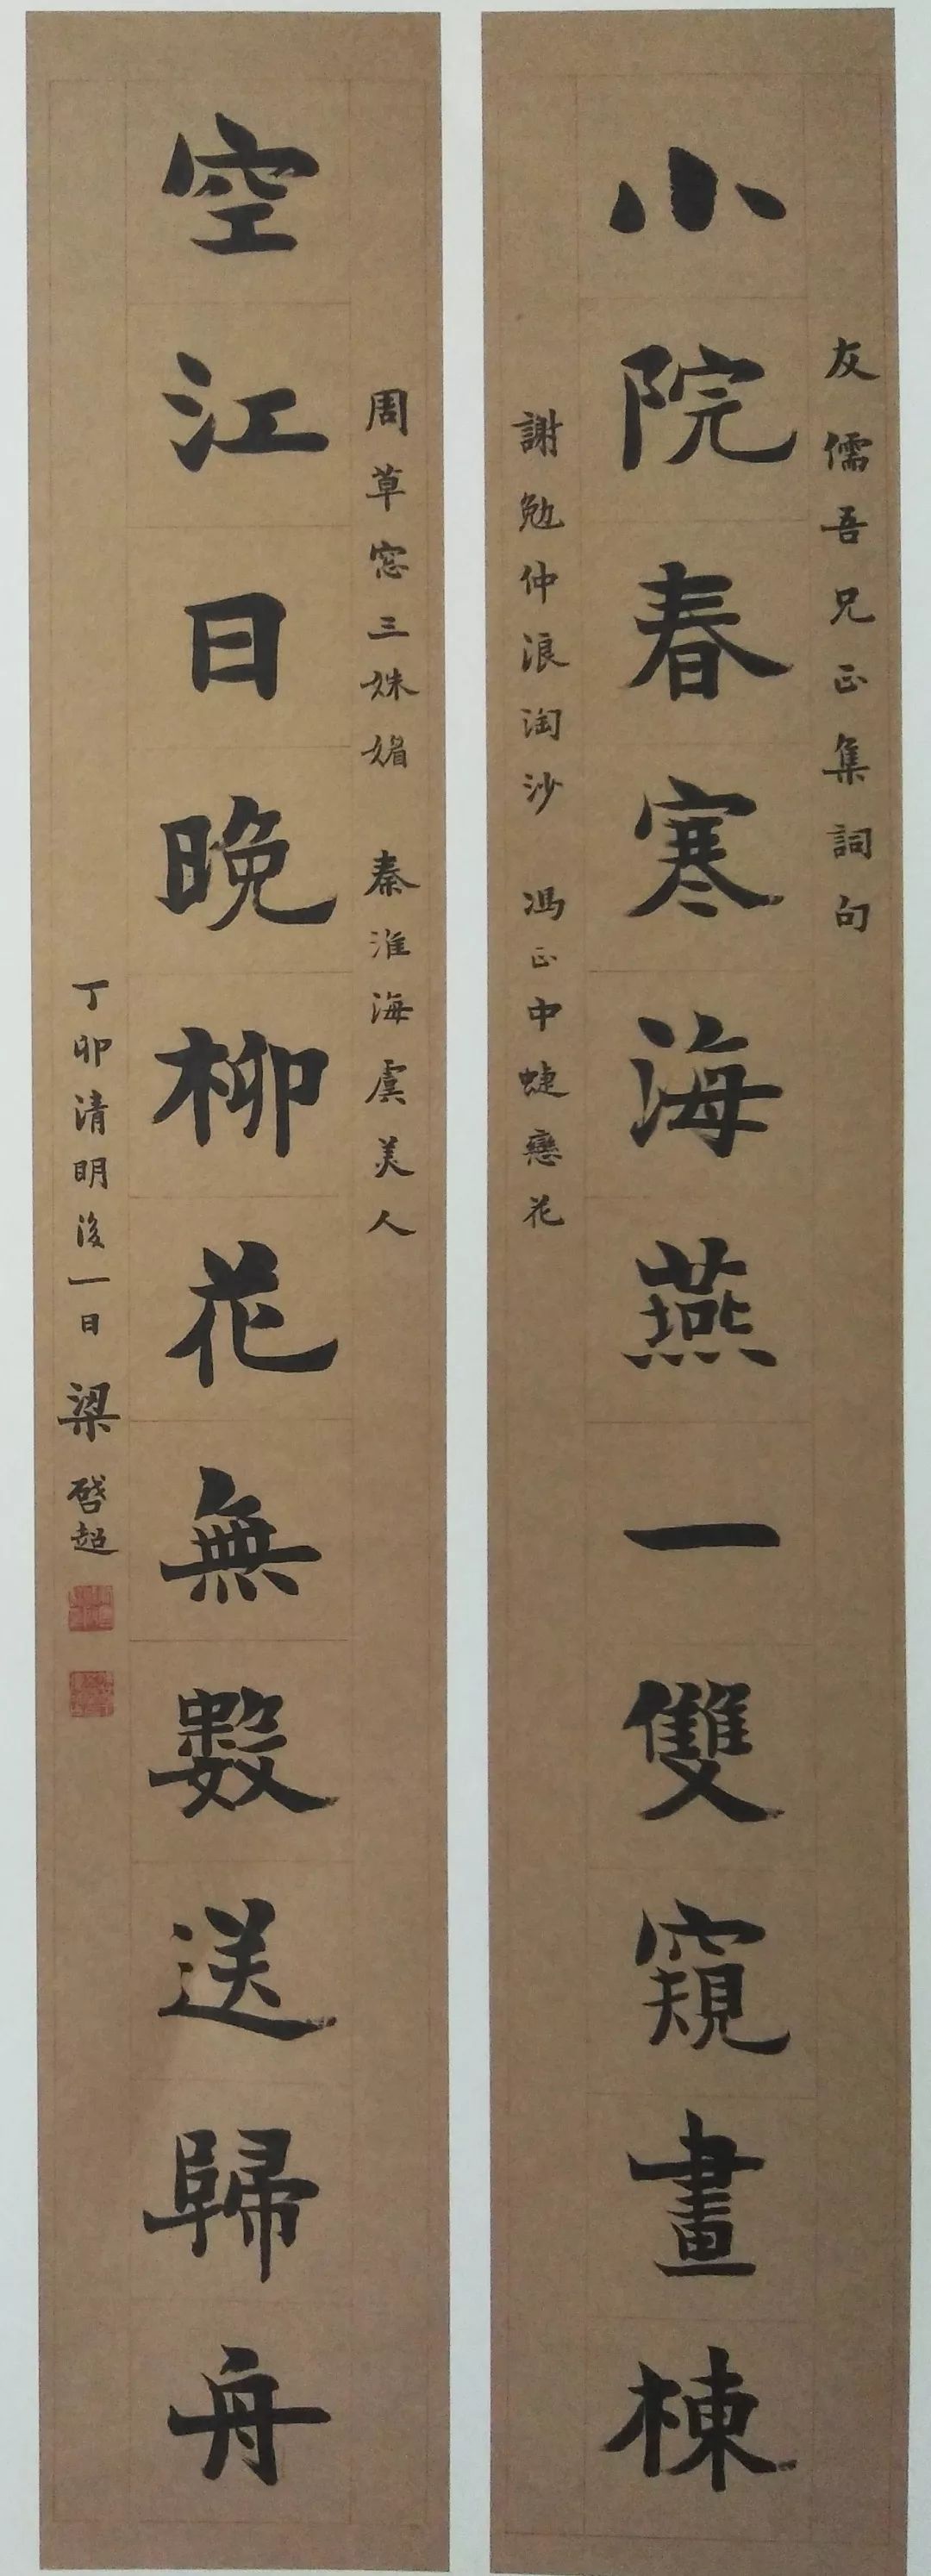 友儒吾兄正集詞句
小院春寒海燕一雙窺畫棟
謝勉仲浪淘沙 馮正中蜨戀花
周草窓三姝媚 秦淮海虞美人
空江日晚柳花無數送歸舟
丁卯清明後一日 梁啓超